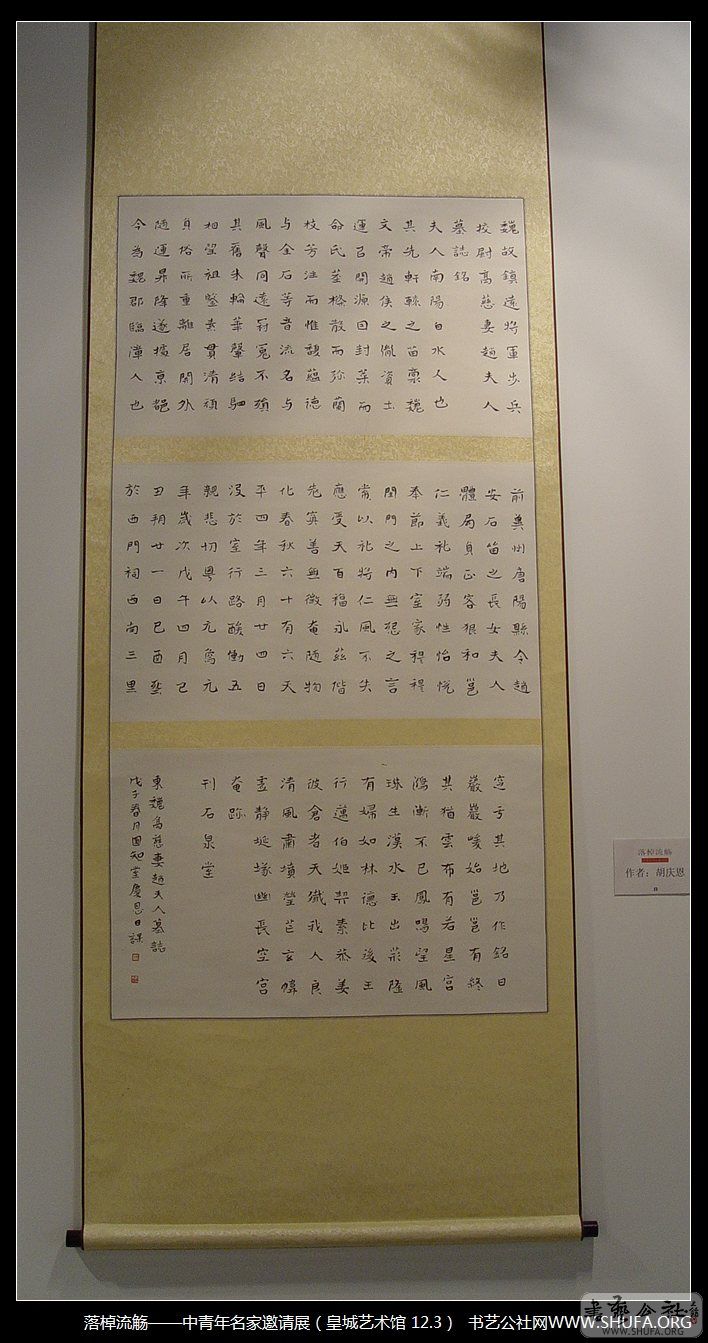 魏故鎮遠將軍步兵
挍尉高慈妻趙夫人
墓誌銘
夫人南陽白水人也
其先軒轅之苗稟魏
文帝趙侯之胤資土
運啓開源因封葉而
命氏莖散而弥蘭
枝芳注而惟馥蘊德
与金石等音流名与
風聲同遠冠冕不殞
其舊朱輪華轂結駟
相望祖鑒素貫清禎
貞俗所重離居閑外
随運昇降遂京邑
今為魏郡臨漳人也
前冀州唐陽縣令趙
安石笛之長女夫人
體局貞正容狠和邕
仁義礼端弱性怡悦
奉節上下室家穆穆
閨門之内無怨之言
常以礼將仁風不失
應受天百福永茲偕
先寘善無徵奄随物
化春秋六十有六天
平四年三月廿四日
没於室行路酸慟五
親悲切粤以元烏元
年歲次戊午四月己
丑朔廿一日己酉塟
於西門祠西南三里
窆于其地乃作銘曰
巖巖峻始邕邕有終
其猶雲布有若星宫
鴻漸不已鳳鳴望風
珠生漢水玉出崑隆
有婦如林德比後王
行邁伯姬契素恭姜
彼倉者天殲我人良
清風肅墳塋芒玄幃
虚静埏隊幽長空宫
奄跡
刊石泉堂
東魏高慈妻趙夫人墓誌
戊子春月知堂慶恩日課
落棹流觞
作者：胡庆恩
书艺公社
落棹流觞——中青年名家邀请展（皇城艺术馆 12.3） 书艺公社网WWW.SHUFA.ORG